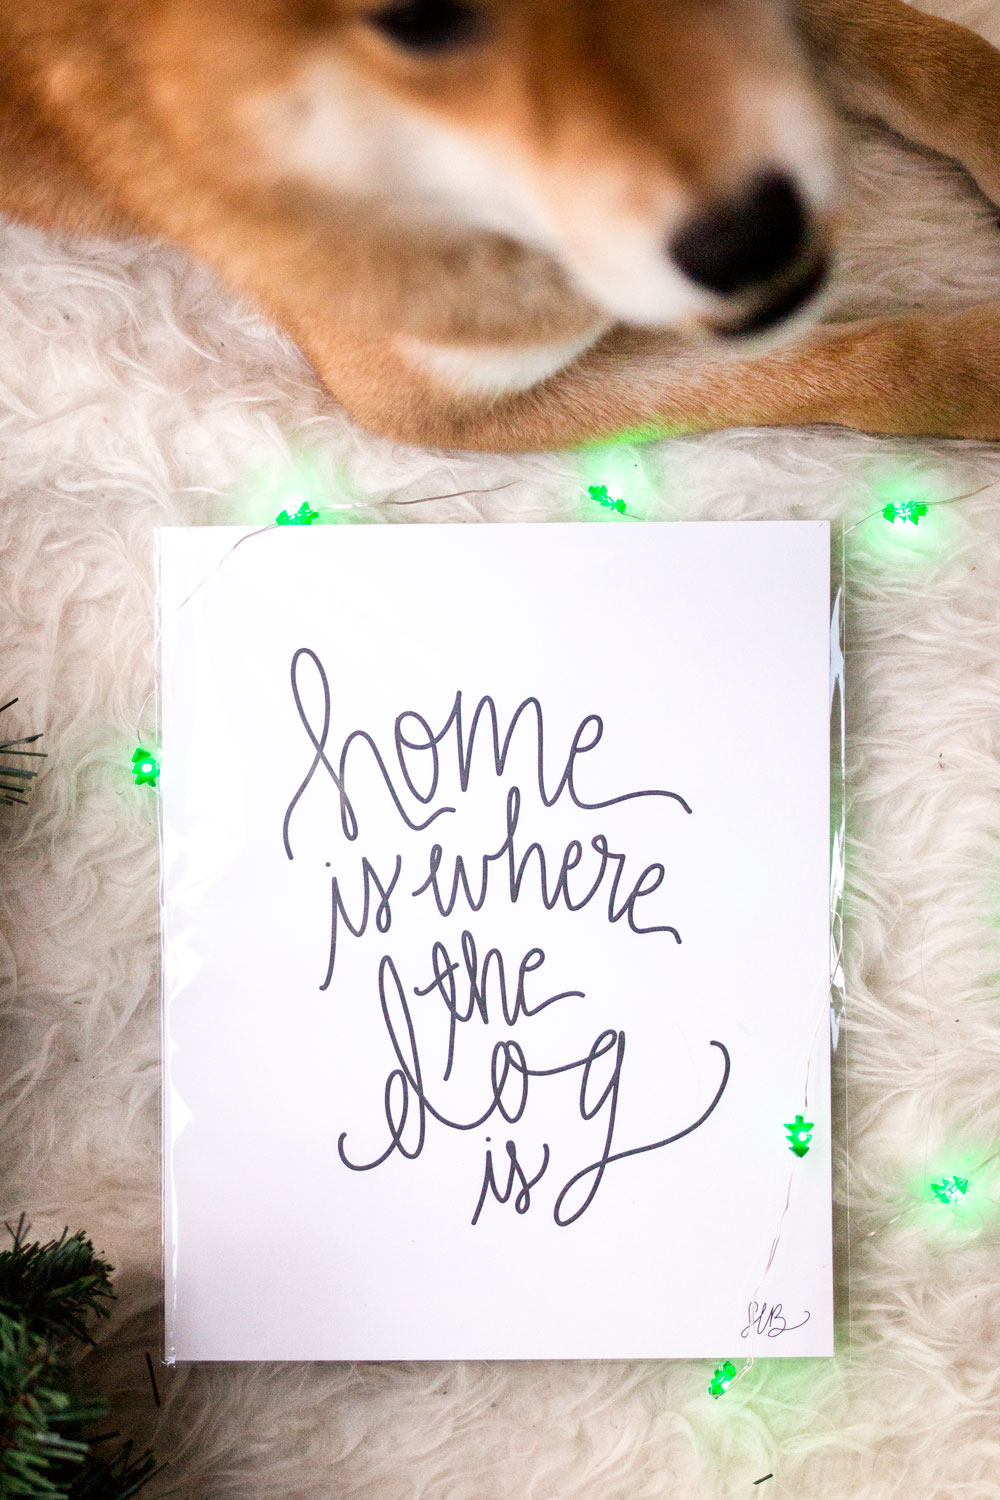 home
is where
the
dog
is